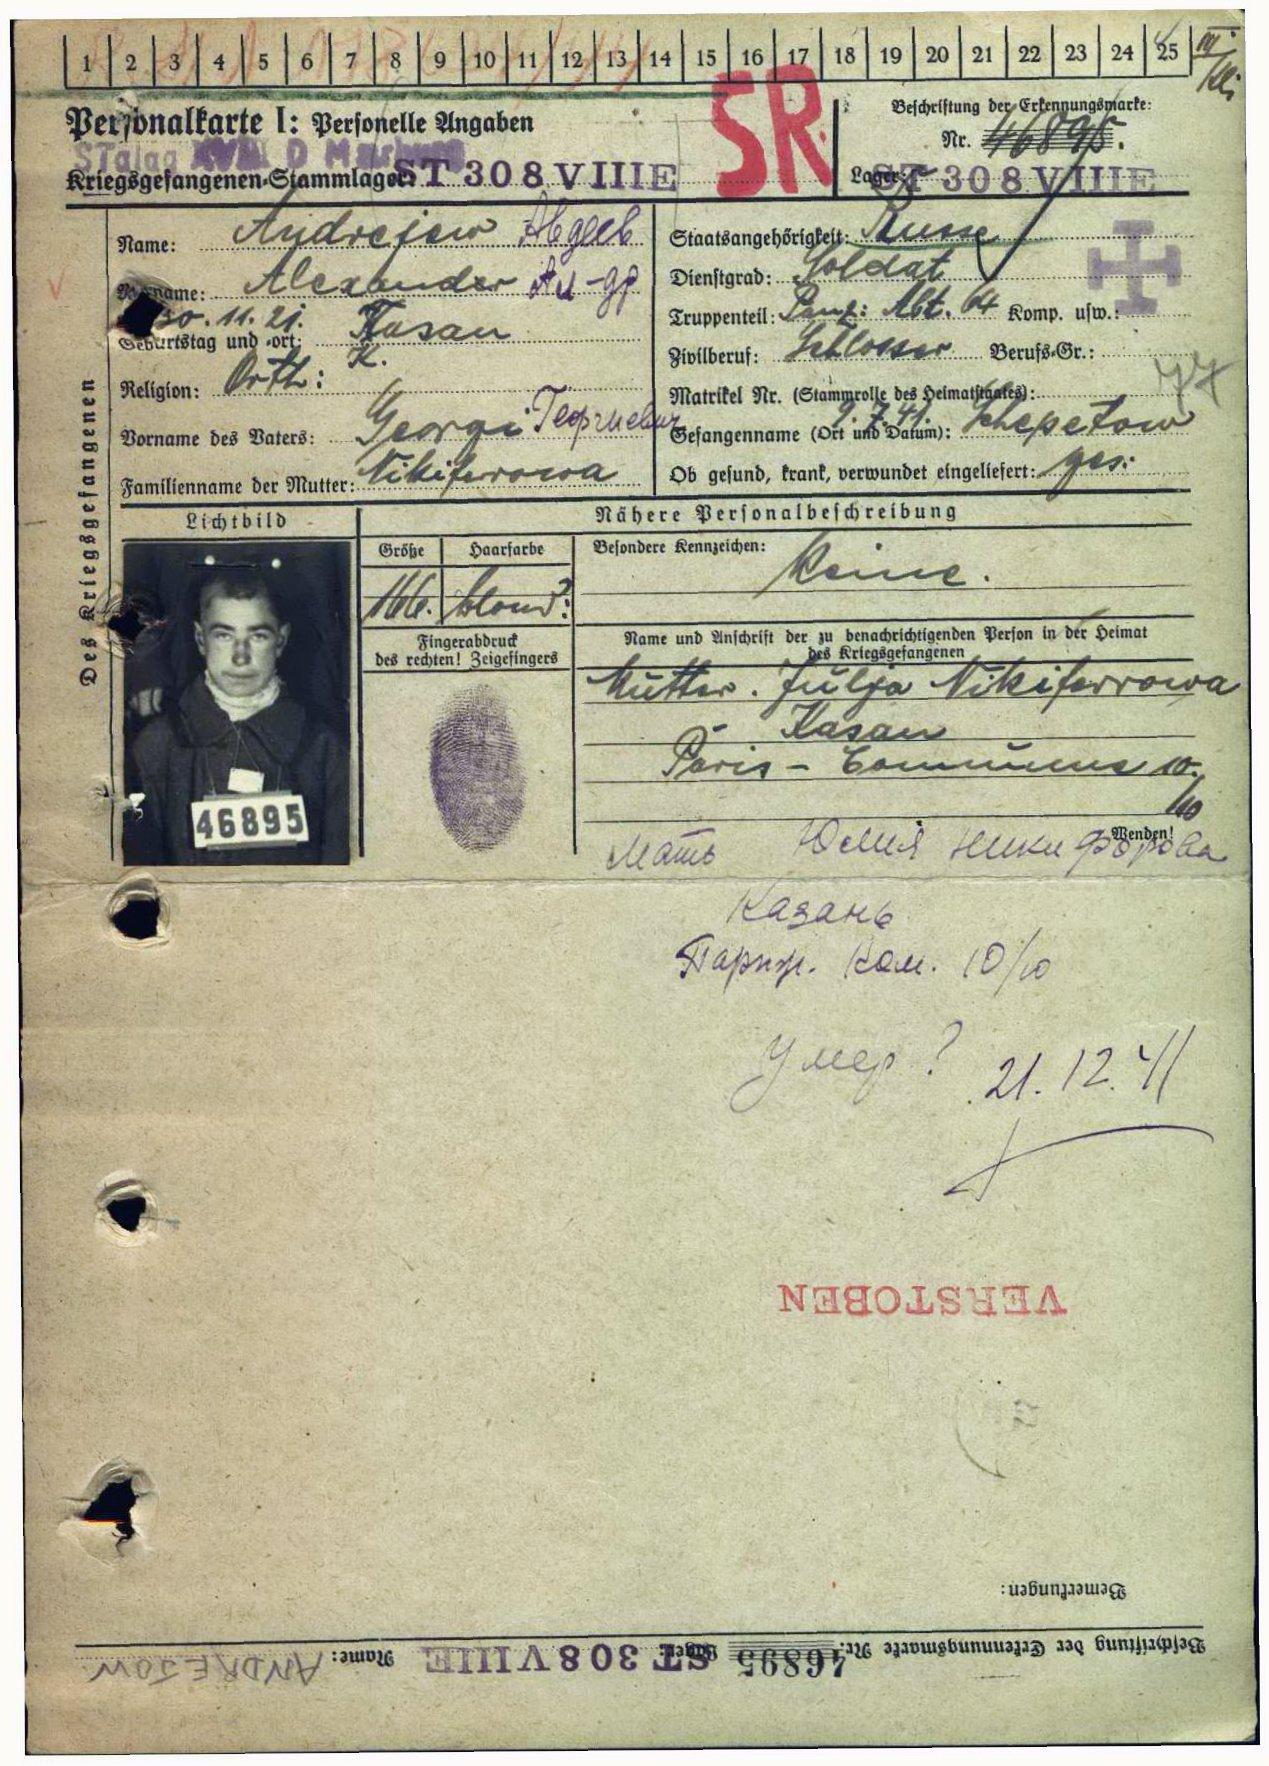 1 2 3 4 5 6 7 8 9 10 11 12 13 14 15 16 17 18 19 20 21 22 23 24 25
Personalkarte I: Personelle Angaben
Stalag XVIII D Marburg
Kriegsgefangenen-Stammlager: ST 308 VIII E
SR
Beschriftung der Erkennungsmarke:
Nr. 46895.
Lager: ST 308 VIII E
Des Kriegsgefangenen
Name: Andrejew Авдеев
Vorname: Alexander Ал-др
Geburtstag und -ort: 30. 11. 21. Kasan
Religion: Orth: K.
Vorname des Vaters: Georgi Георгиевич
Familienname der Mutter: Nikiferrowa
Staatsangehörigkeit: Russe
Dienstgrad: Soldat
Truppenteil: Panz: Abt. 64 Komp. usw.:
Zivilberuf: Schlosser Berufs-Gr.:
77
Matrikel Nr. (Stammrolle des Heimatstaates):
Gefangenname (Ort und Datum): 9. 7. 41. Schepetow
Ob gesund, krank, verwundet eingeliefert: ges:
Lichtbild
46895
Nähere Personalbeschreibung
Größe Haarfarbe
166. blond:
Besondere Kennzeichen:
Keine.
Fingerabdruck
des rechten! Zeigefingers
Name und Anschrift der zu benachrichtigenden Person in der Heimat
des Kriegsgefangenen
Mutter. Julja Nikiferrowa
Kasan
Paris - Commune 10.
/10
Wenden!
Мать Юлия Никифорова
Казань
Париж. Ком. 10/10
Умер? 21. 12. 41
VERSTOBEN
Bemerkungen:
Beschriftung der Erkennungsmarke Nr. 46895 Lager: ST 308 VIII E Name: ANDREJEW